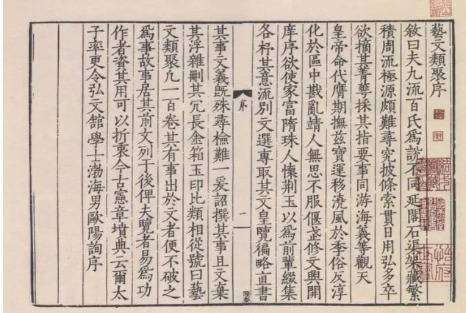 藝文類聚序
敘曰夫九流百氏爲說不同延閣石渠架藏繁
積周流極源頗難尋究披條索貫日用弘多卒
欲摘其菁華採其指要事同游海義等觀天
皇帝命代膺期撫茲寶運移澆風於季俗反淳
化於區中戡亂靖人無思不服偃武修文興開
庠序欲使家富隋珠人懷荊玉以爲前輩綴集
各杼其意流別文選專取其文皇覽徧略直書
序
一
其事文義既殊尋檢難一爰詔撰其事且文棄
其浮雜刪其冗長金箱玉印比類相從號曰藝
文類聚凡一百卷其有事出於文者便不破之
爲事故事居其前文列于後俾夫覽者易爲功
作者資其用可以折衷今古憲章墳典云爾太
子率更令弘文館學士渤海男歐陽詢序